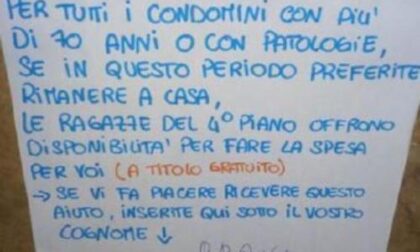 PER TUTTI I CONDOMINI CON PIU'
DI 70 ANNI O CON PATOLOGIE,
SE IN QUESTO PERIODO PREFERITE
RIMANERE A CASA,
LE RAGAZZE DEL 4° PIANO OFFRONO
DISPONIBILITA' PER FARE LA SPESA
PER VOI (A TITOLO GRATUITO)
→ SE VI FA PIACERE RICEVERE QUESTO
AIUTO, INSERITE QUI SOTTO IL VOSTRO
COGNOME ↓